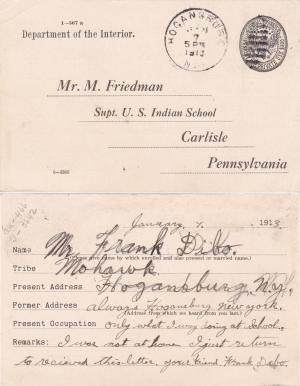 1-567 a
Department of the Interior.
HOGANSBURG
7
5 PM
1913
N.Y.
Mr. M. Friedman
Supt. U. S. Indian School
Carlisle
Pennsylvania
January 7, 1913.
Name Mr Frank Debo.
(Please give name by which enrolled and also present or married name.)
Tribe Mohawk
Present Address Hogansburg N.y.
Former Address always Hogansburg new york.
(Address from which we heard from you last.)
Present Occupation only what I was doing at School.
Remarks: I was not at home I just return
to recieved this letter, your friend, Frank Debo.